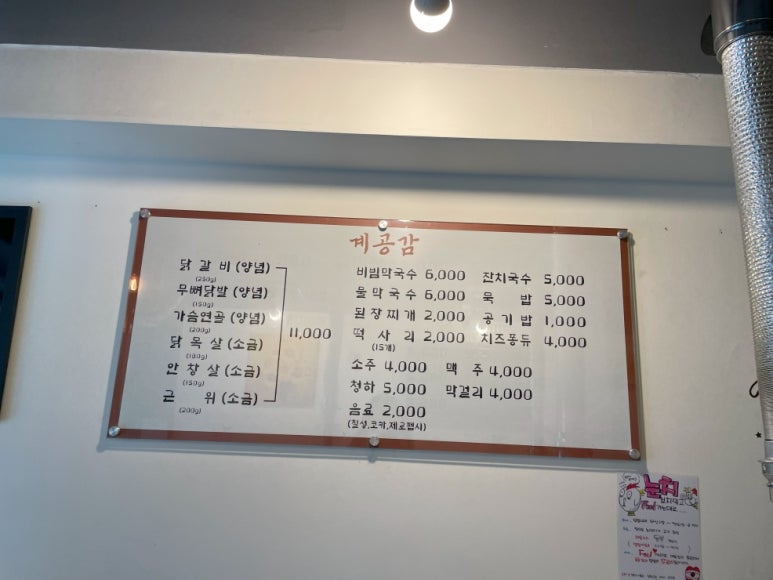 계공감
닭 갈 비 (양념)
(250g)
무뼈닭발 (양념)
(150g)
가슴연골 (양념)
(200g)
닭 목 살 (소금)
(180g)
안 창 살 (소금)
(150g)
근 위 (소금)
(200g)
11,000
비빔막국수 6,000 잔치국수 5,000
물막국수 6,000 묵 밥 5,000
된장찌개 2,000 공기밥 1,000
떡 사 리 2,000 치즈퐁듀 4,000
(15개)
소주 4,000 맥 주 4,000
청하 5,000 막걸리 4,000
음료 2,000
(칠성,코카,제로펩시)
눈치
Feel